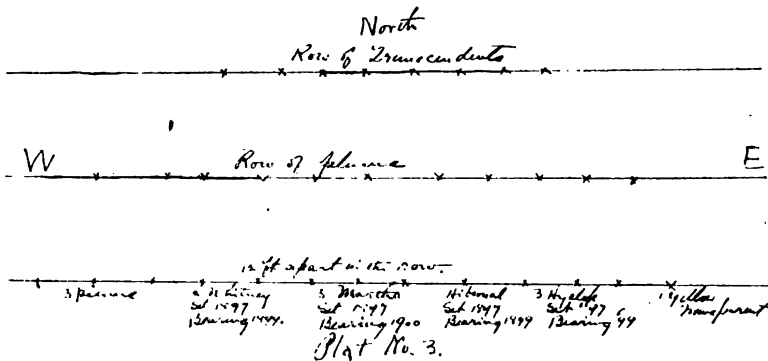 North
Row of Transcendents
W
Row of plums
E
12 ft apart in the row.
3
Whitney
Set 1897
Bearing 1899.
3 Martha
Set 1897
Bearing 1900
Hibernal
Set 1897
Bearing 1899
3 Hyslop
Set '97
Bearing '99
1 Yellow
Transparent
Plat No. 3.